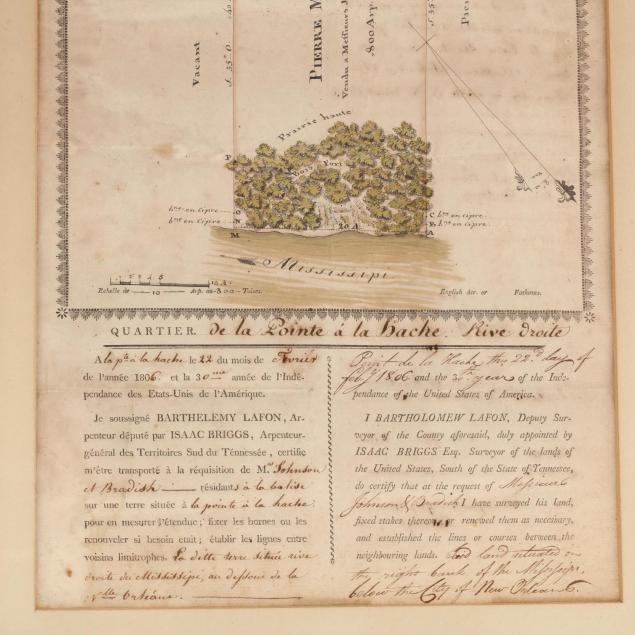 Vacant
S. 35° O.
PIERRE M
Vendu a Messieurs J
800 Arp
S. 35°
Prairie haute
Bois Fort
P
O
bne en Cipre
N
bne en Cipre
M
20 A
C
bne en Cipre
B
bne en Cipre
A
Mississipi
Echelle de 10 Arp. ou 300 Toises.
English Acr. or Fathoms.
QUARTIER de la Pointe à la hache. Rive droite
A la pte à la hache le 22 du mois de fevrier
de l'année 1806. et la 30me année de l'Indé-
pendance des Etats-Unis de l'Amérique.
Je soussigné BARTHELEMY LAFON, Ar-
penteur député par ISAAC BRIGGS, Arpenteur-
général des Territoires Sud du Ténnessée, certifie
m'être transporté à la réquisition de Mrs Johnson
et Bradish résidants à la balise
sur une terre située à la pointe à la hache
pour en mesurer l'étendue; fixer les bornes ou les
renouveler si besoin était; établir les lignes entre
voisins limitrophes. La ditte terre située rive
droite du Mississipi, au dessous de la
Nlle Orléans.
Point de la Hache this 22d day of
feby 1806 and the 30th years of the Inde-
pendance of the United States of America.
I BARTHOLOMEW LAFON, Deputy Sur-
veyor of the County aforesaid, duly appointed by
ISAAC BRIGGS Esq. Surveyor of the lands of
the United States, South of the State of Tennessee,
do certify that at the request of Messieurs
Johnson & Bradish I have surveyed his land,
fixed stakes thereon or renewed them as necessary,
and established the lines or courses between the
neighbouring lands. said land situated on
the right bank of the Mississipi,
below the City of New Orleans.